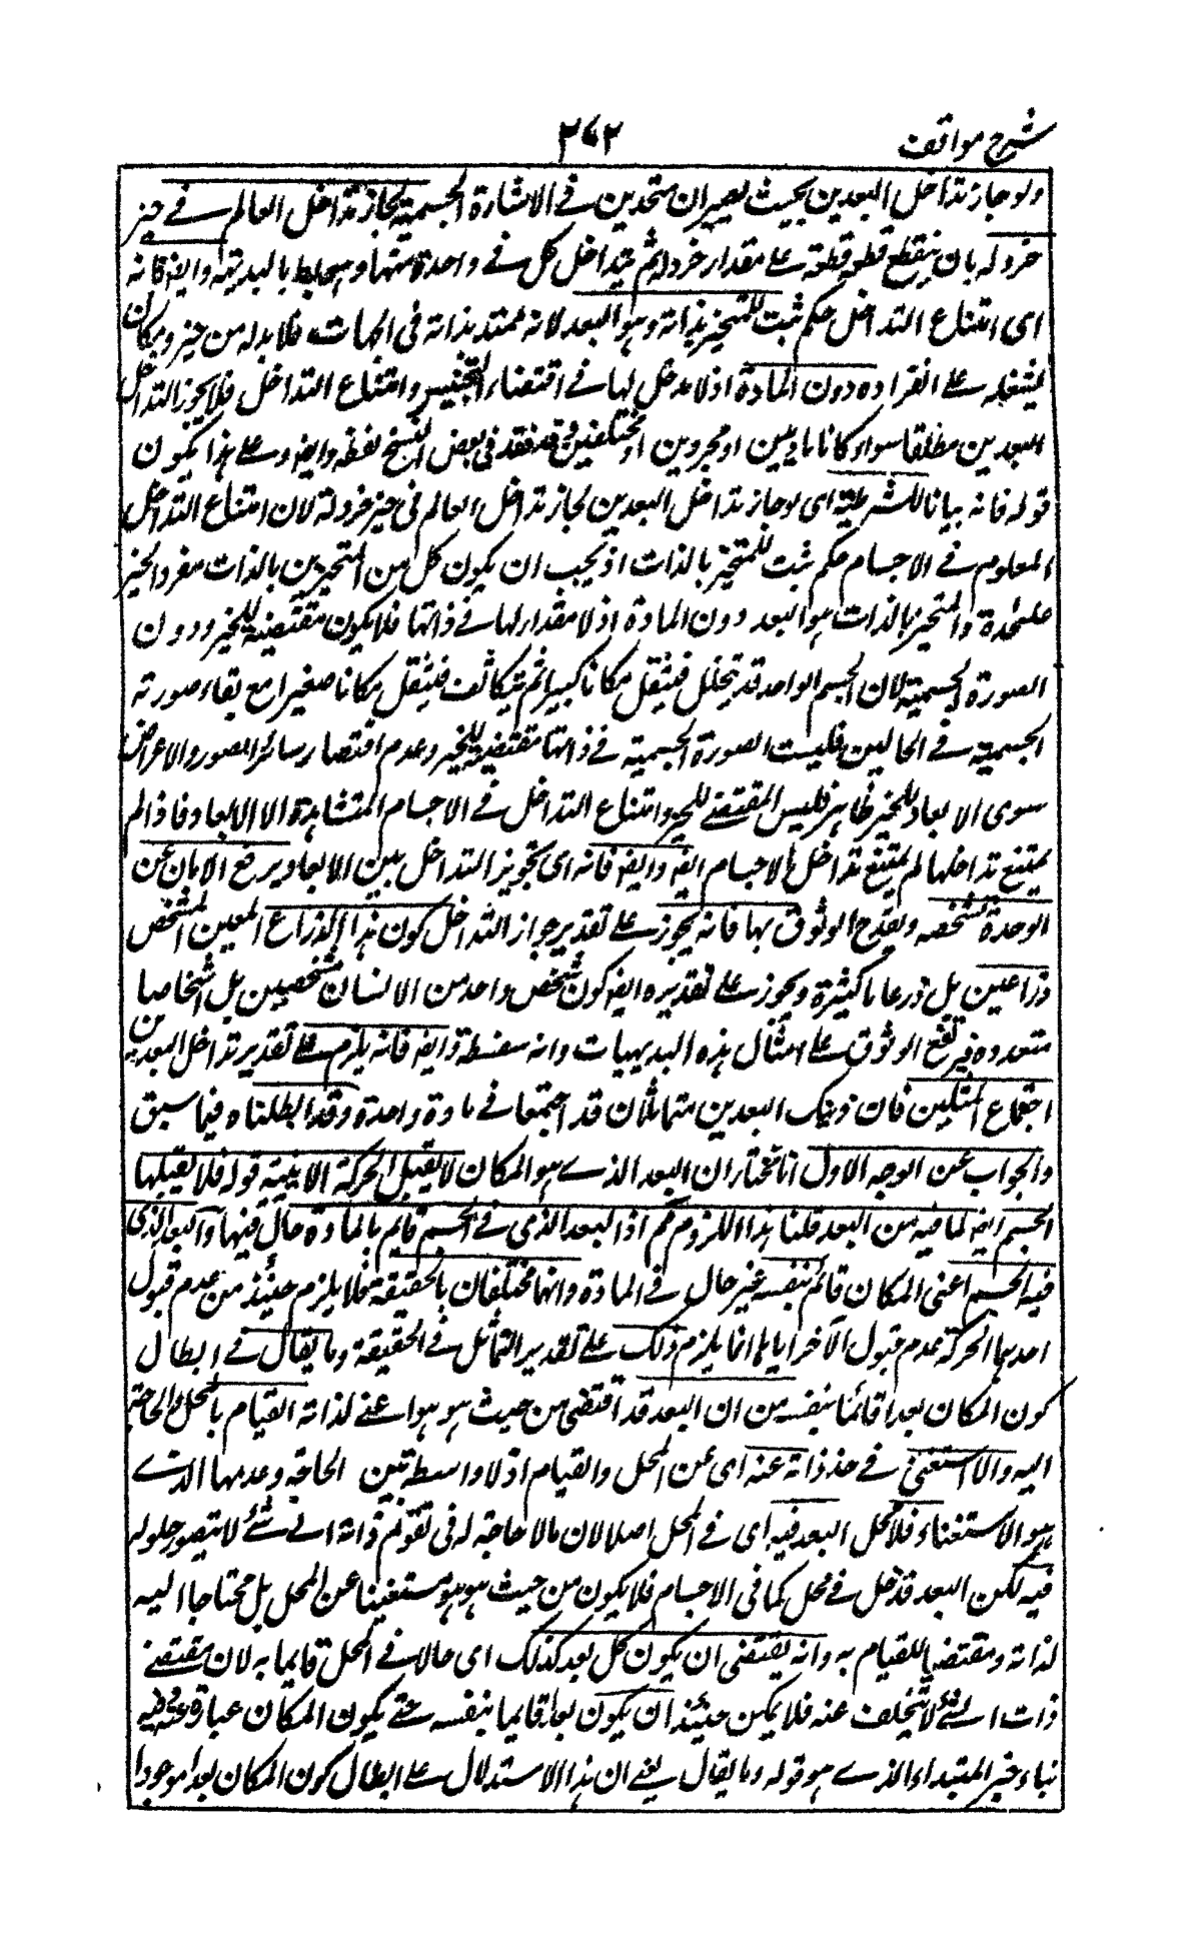 شرح مواقف
٢٧٢
ولو جاز تداخل البعدين بحيث يصيران متحدين في الاشارة الحسية لجاز تداخل العالم في حيز
خردلة بان ينقطع قطعة قطعة على مقدار خردلة ثم يتداخل كل في واحدة منها وهو باطل بالبديهة وايضا فانه
اى امتناع التداخل حكم ثبت للمتحيز بذاته وهو البعد لانه ممتد بذاته في الجهات فلا بد له من حيز ومكان
يشغله على انفراده دون المادة اذ لا مدخل لها في اقتضاء التحيز وامتناع التداخل فلا يجوز تداخل
البعدين مطلقا سواء كانا ماديين او مجردين او مختلفين وقد فقد في بعض النسخ لفظة وايضا وعلى هذا يكون
قوله فانه بيانا للشرطية اى لو جاز تداخل البعدين لجاز تداخل العالم في حيز خردلة لان امتناع التداخل
المعلوم في الاجسام حكم ثبت للمتحيز بالذات اذ يجب ان يكون كل من المتحيزين بالذات منفردا بحيز
عليحدة والمتحيز بالذات هو البعد دون المادة اذ لا مقدار لها في ذاتها فلا يكون مقتضية للتحيز ودون
الصورة الجسمية لان الجسم الواحد قد يتخلخل فيشغل مكانا كبيرا ثم يتكاثف فيشغل مكانا صغيرا مع بقاء صورته
الجسمية في الحالين فليست الصورة الجسمية في ذاتها مقتضية للتحيز وعدم اقتضاء سائر الصور والاعراض
سوى الابعاد للتحيز ظاهر فليس المقتضى للتحيز وامتناع التداخل في الاجسام المتشاهدة الا الابعاد فاذا لم
يمتنع تداخلها لم يمتنع تداخل الاجسام ايضا وايضا فانه اى تجويز التداخل بين الابعاد يرفع الامان عن
الوحدة الشخصية ويقدح الوثوق بها فانه يجوز على تقدير جواز التداخل كون هذا الذراع المعين المشخص
ذراعين بل ذرعانا كثيرة ويجوز على تقديره ايضا كون شخص واحد من الانسان شخصين بل اشخاصا
متعددة فيرتفع الوثوق على امثال هذه البديهيات وانه سفسطة وايضا فانه يلزم على تقدير تداخل البعدين
اجتماع المثلين فان ذينك البعدين متماثلان قد اجتمعا في مادة واحدة وقد ابطلناه فيما سبق
والجواب عن الوجه الاول انا نختار ان البعد الذي هو المكان لا يقبل الحركة الاينية قوله فلا يقبلها
الجسم ايضا لما فيه من البعد قلنا هذا اللزوم مم اذ البعد الذي في الجسم قايم بالمادة حال فيها والبعد الذي
فيه الجسم اعنى المكان قائم بنفسه غير حال في المادة وانهما مختلفان بالحقيقة فلا يلزم حينئذ من عدم قبول
احدهما الحركة عدم قبول الآخر اياها انما يلزم ذلك على تقدير التماثل في الحقيقة وما يقال في ابطال
كون المكان بعدا قائما بنفسه من ان البعد قد اقتضى من حيث هو هو اعنى لذاته القيام بالمحل والحاجة
اليه والا استغنى في حد ذاته عنه اى عن المحل والقيام اذ لا واسطة بين الحاجة وعدمها الذي
هو الاستغناء فلا يحل البعد فيه اى في المحل اصلا لان ما لا حاجة له في تقوّم ذاته الى شئ لا يتصور حلوله
فيه لكن البعد قد حل في محل كما في الاجسام فلا يكون من حيث هو هو مستغنيا عن المحل بل محتاجا اليه
لذاته ومقتضيا للقيام به وانه يقتضى ان يكون كل بعد كذلك اى حالا في المحل قايما به لان مقتضى
ذات الشئ لا يتخلف عنه فلا يمكن حينئذ ان يكون بعدا قايما بنفسه حتى يكون المكان عبارة عنه فيه
نباء خبر المبتداء الذي هو قوله وما يقال يعنى ان هذا الاستدلال على ابطال كون المكان بعدا موجودا